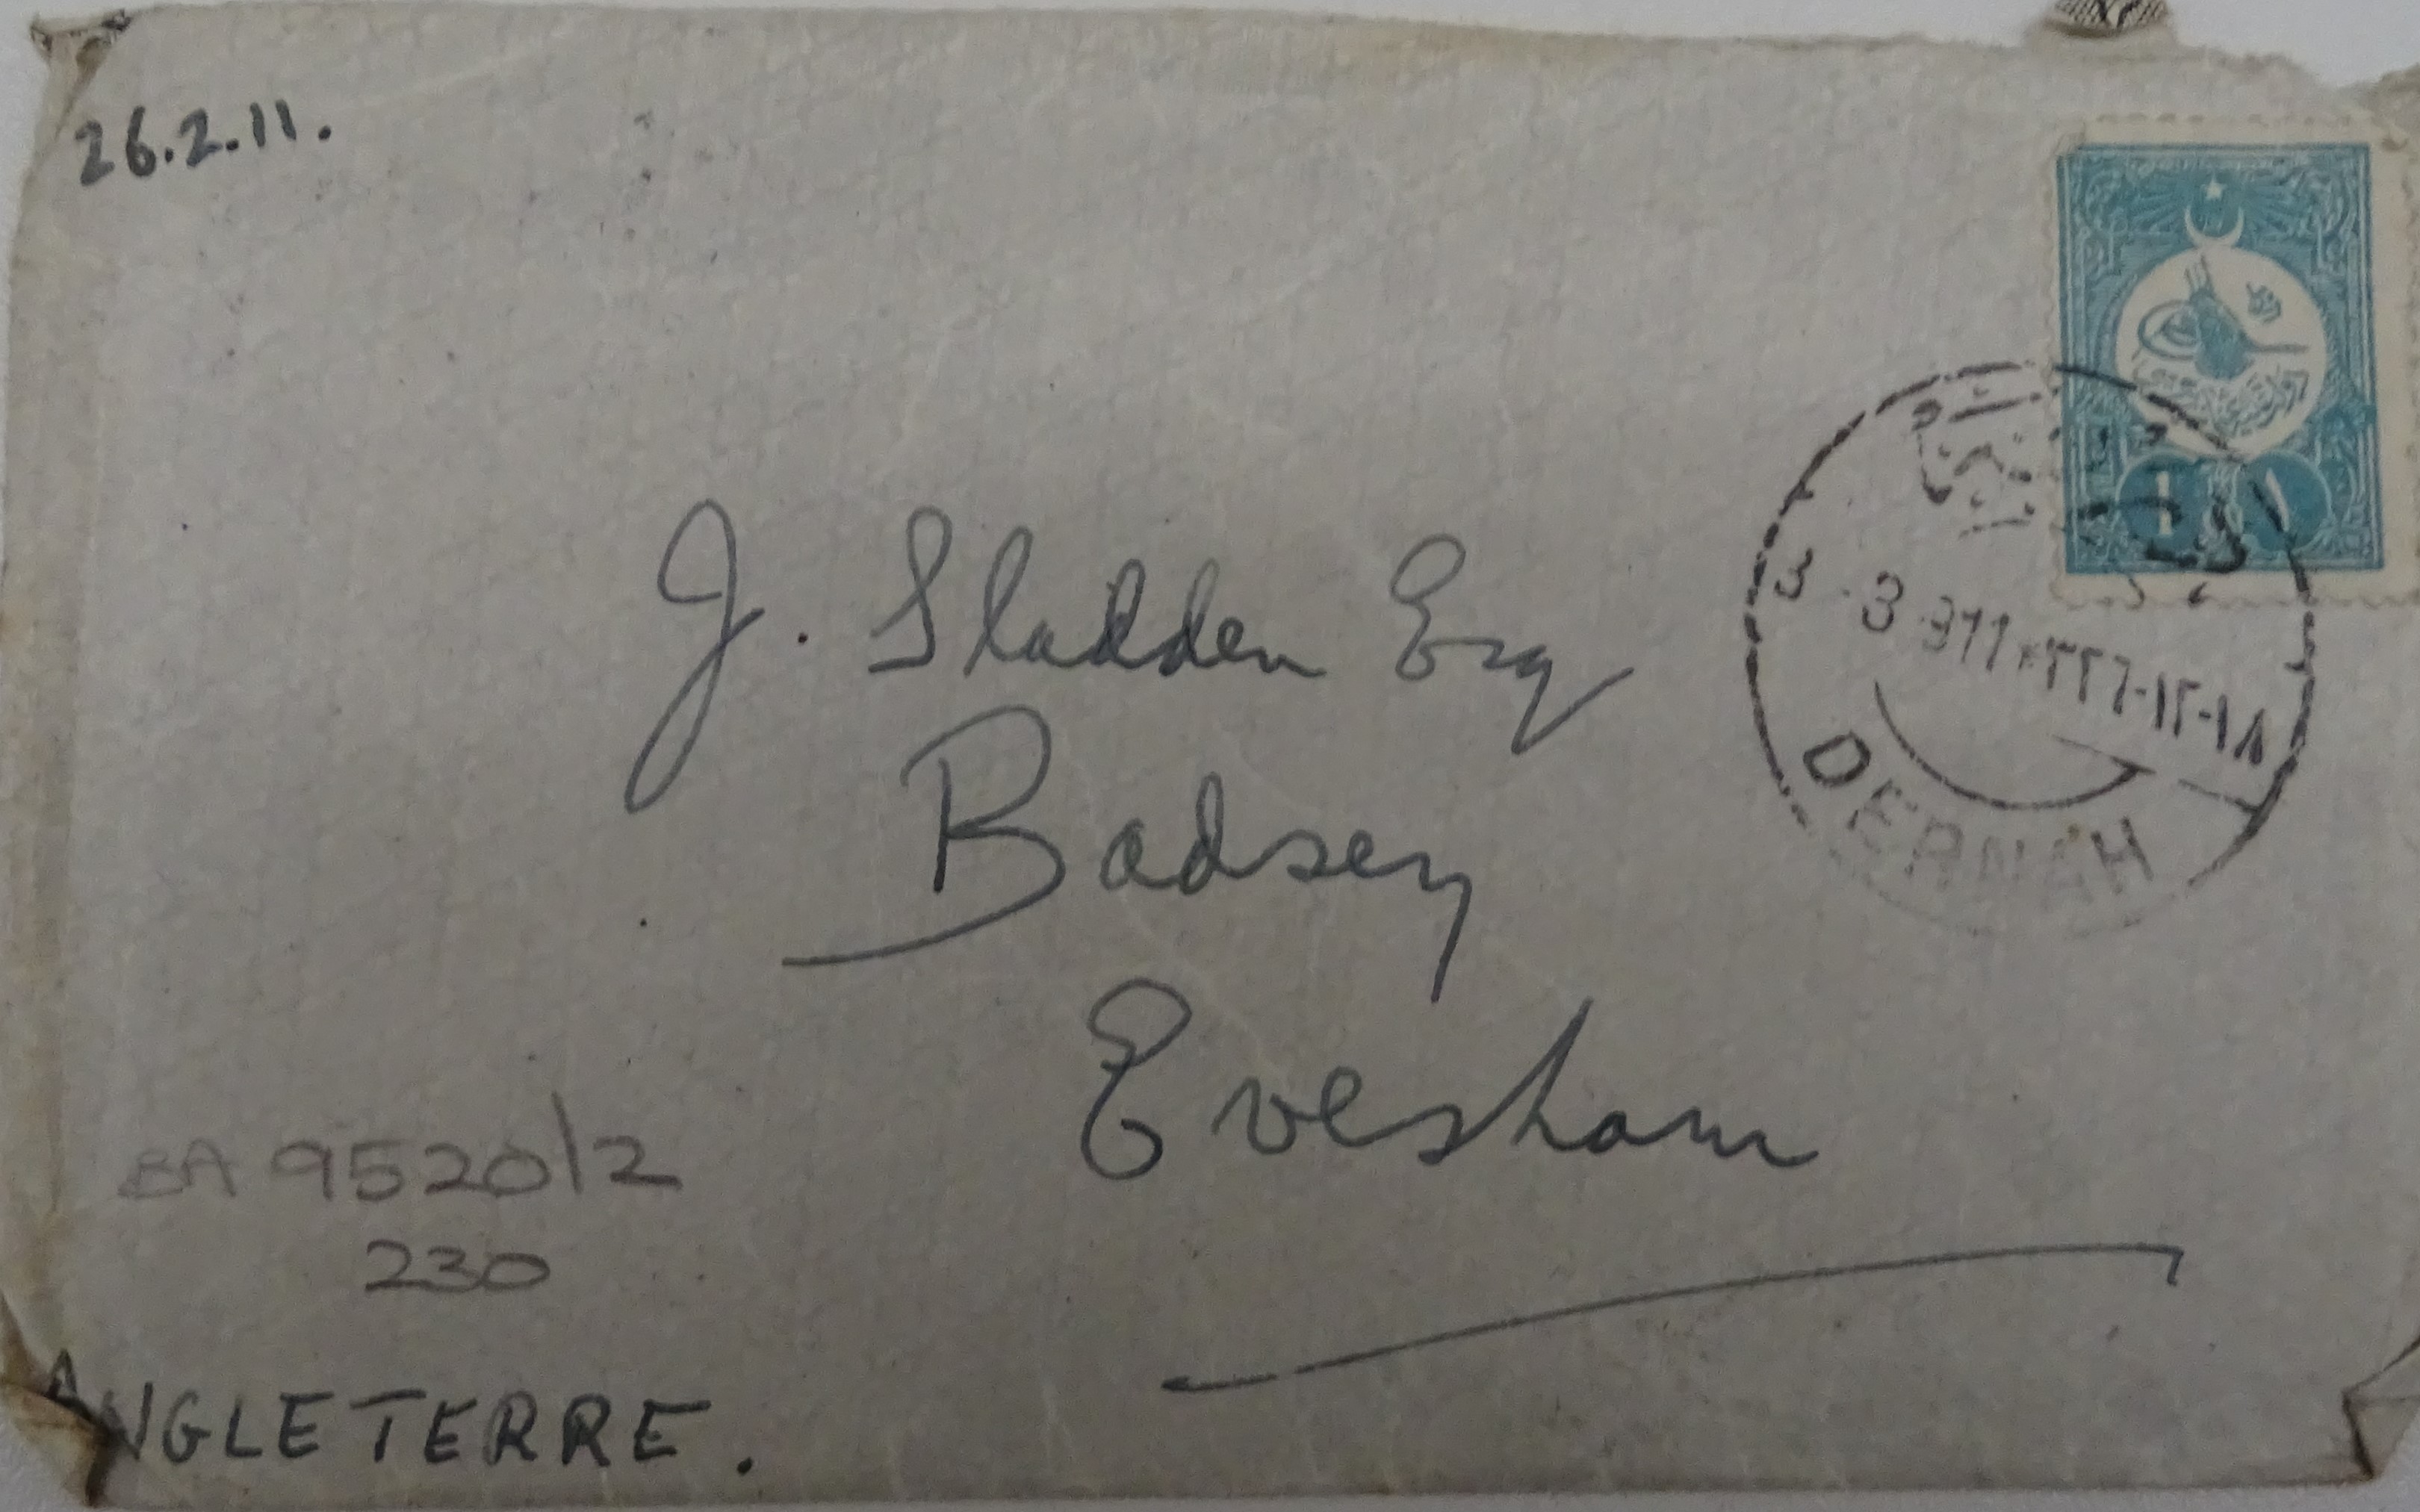 26.2.11.
١ ١
3 3 911 * ٣٢٦-١٢-١٨
DERNEH
J. Sladden Esq
Badsey
Evesham
BA 9520/2
230
ANGLETERRE.